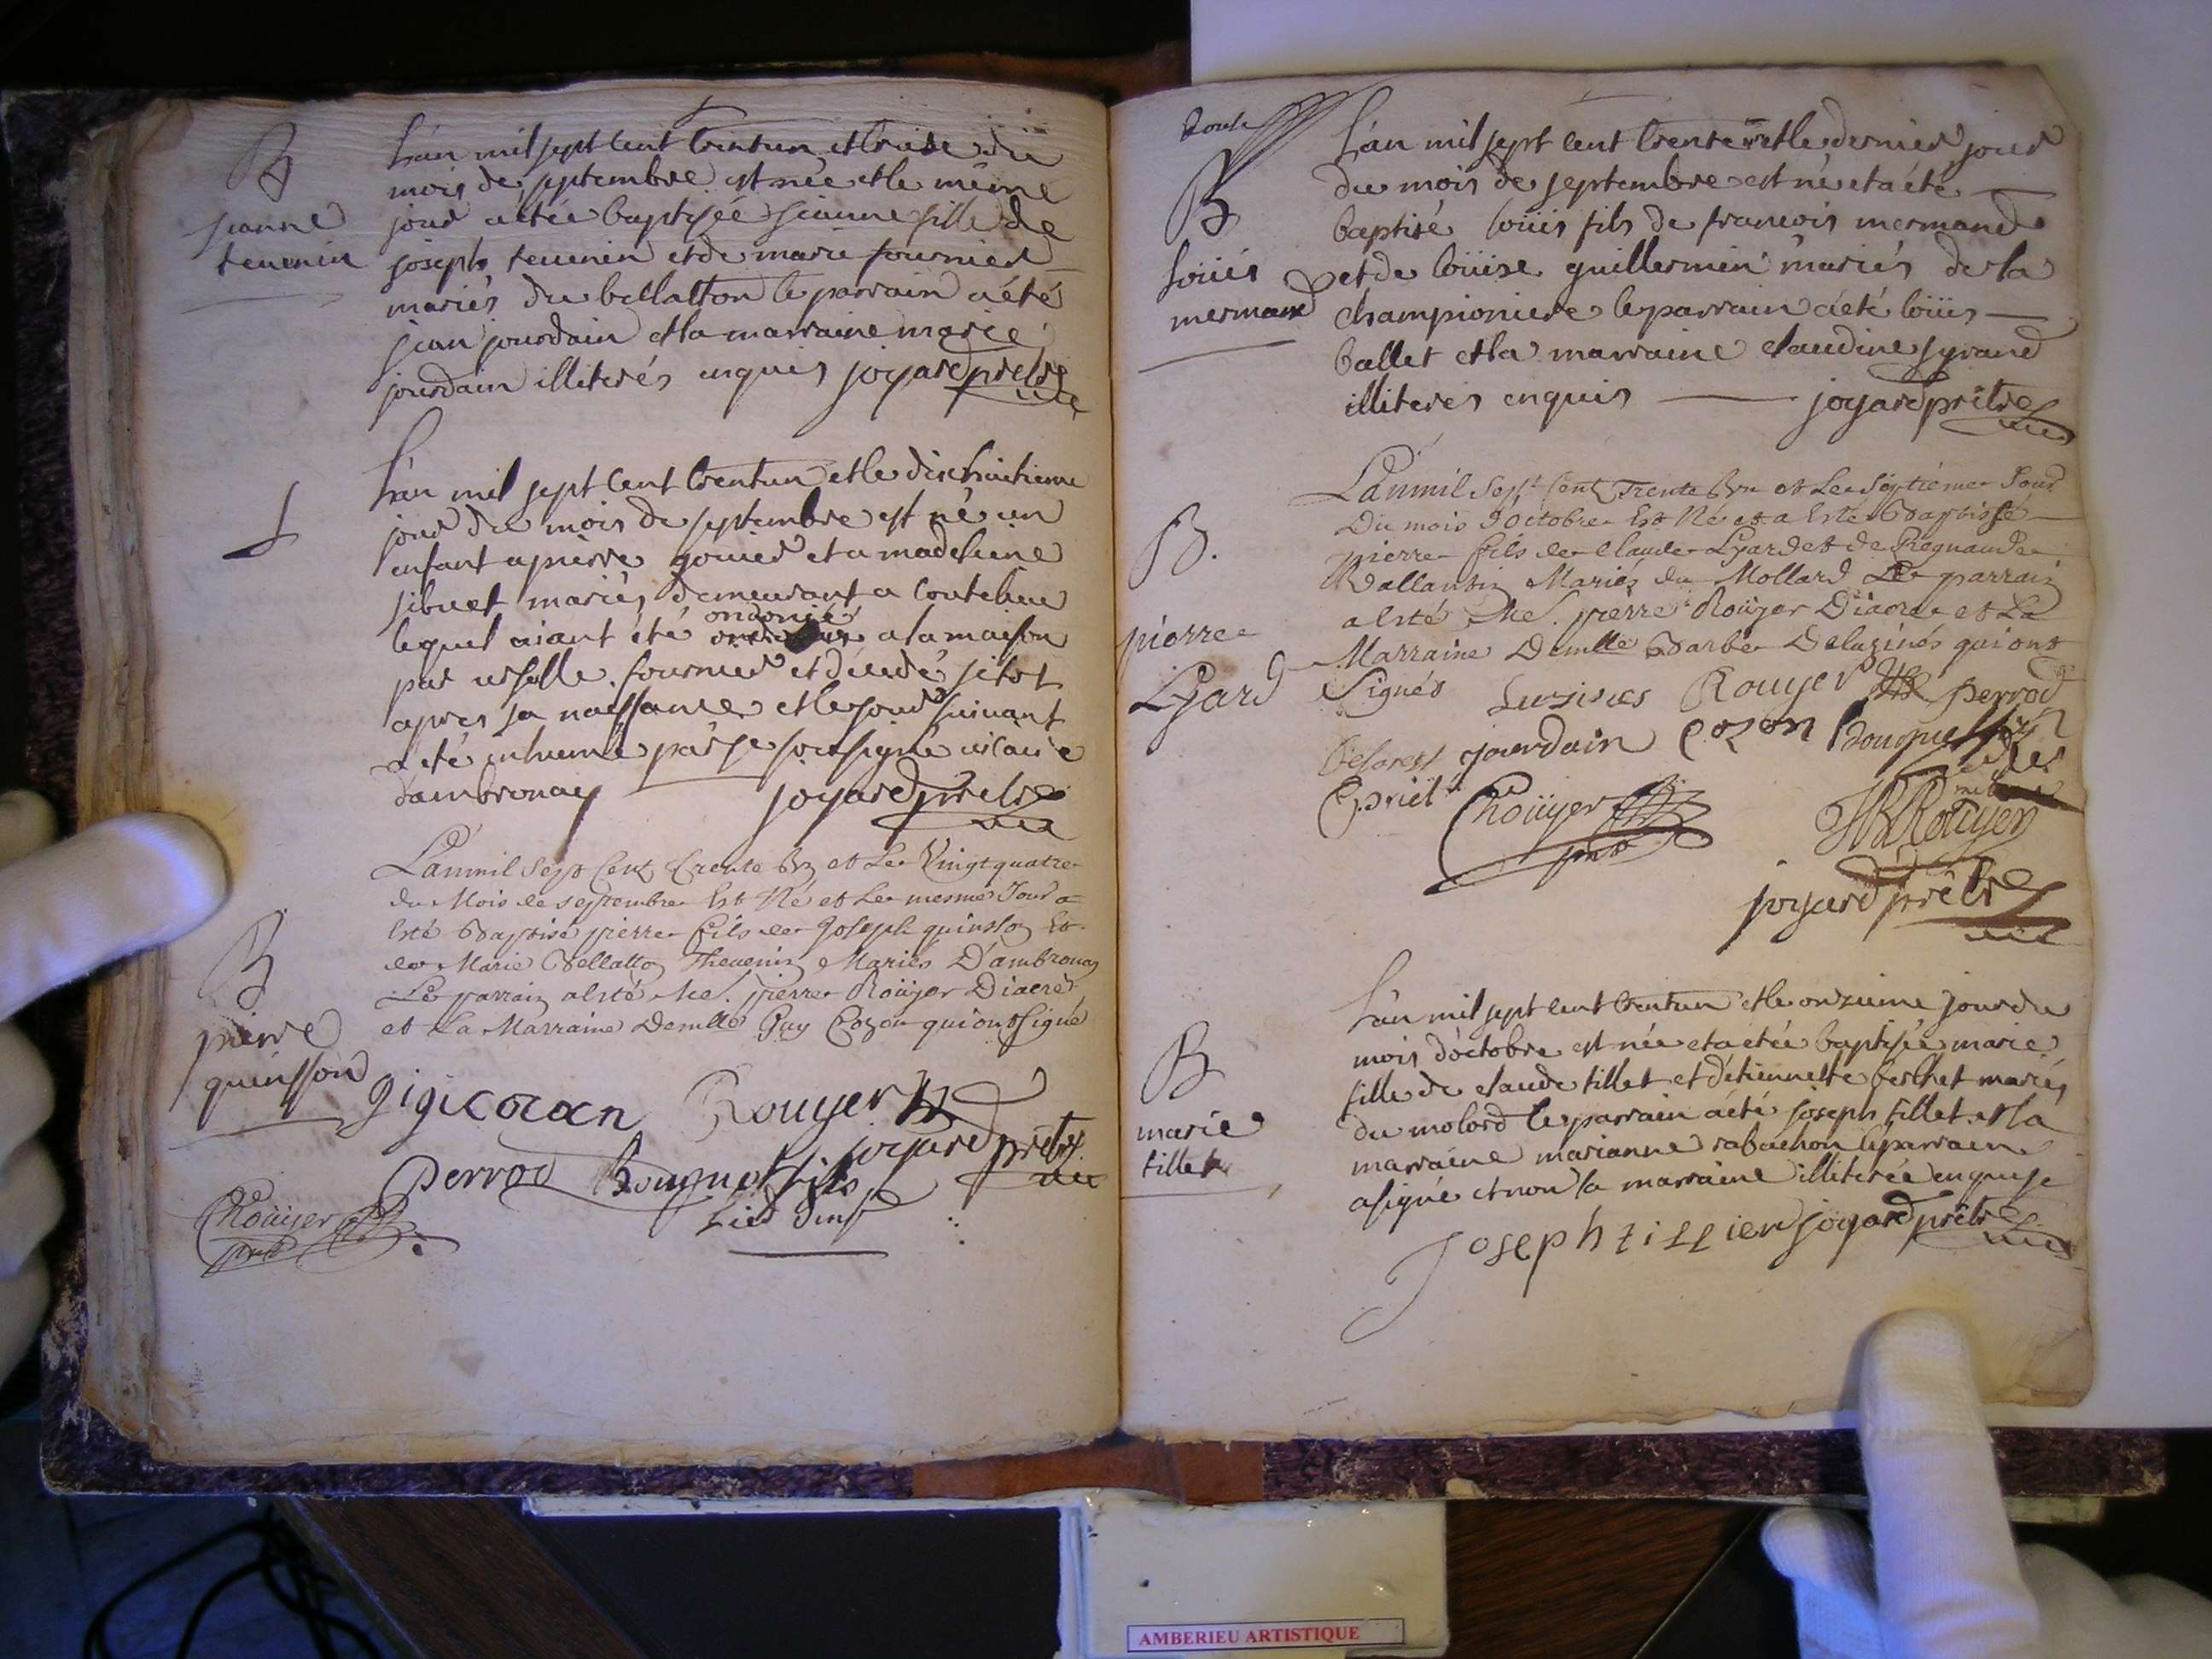 B
jeanne
tevenin
L'an mil sept cent trentun et treise du
mois de septembre est née et le même
jour a étée baptisée jeanne fille de
joseph tevenin et de marie fournier
mariés du bellatton le parrain a été
jean jourdain et la marraine marie
jourdain illiterés enquis joyard prêtre
vic
L'an mil sept cent trentun et le dixhuitieme
jour du mois de septembre est né un
enfant a pierre gouier et a madeleine
sibuet mariés demeurant a coutelieu
ondonié
lequel aiant été a la maison
par fournier et décédé sitot
apres sa naissance et le jour suivant
a été inhumé par je sousigné vicaire
d'ambronay joyard prêtre
vic
B
pierre
quinsson
L'an mil sept Cent trente Un et Le Vingt quatre
du Mois de septembre Est Né et Le mesme Jour a
Esté Baptisé pierre fils de Joseph quinson Et
de Marie Bellatton Thevenin Mariés D'ambronay
Le parrain a Esté Me. pierre Roüyer Diacre
et La Marraine Demlle Guy Cozon qui ont Signé
gigi cozon Rouyer
joyard prêtre
vic
perrod bouquet fils
Roüyer
B
loüis
mermand
L'an mil sept cent trente un et le dernier jour
du mois de septembre est né et a été
baptisé loüis fils de francois mermand
et de loüise guillermin mariés de la
championiere le parrain a été loüis
ballet et la marraine claudine syrand
illiterés enquis joyard prêtre
vic
B.
pierre
Lyard
L'an mil Sept Cent Trente Un et Le Septiéme Jour
Du mois D'octobre Est Né et a Esté Baptissé
pierre fils de Claude Lyard et de Regnaude
Vallantin Mariés du Mollard Le parrain
a Esté Me. pierre Roüyer Diacre et La
Marraine Demlle Barbe Delusinés qui ont
Signés Lusines Rouyer perrod
jourdain cozon bouquet fils
Roüyer
Rouyer
joyard prêtre
vic
B
marie
tillet
L'an mil sept cent trentun et le onzieme jour du
mois d'octobre est née et a étée baptisée marie
fille de claude tillet et d'etiennette berthet mariés
du molard le parrain a été joseph tillet et la
marraine marianne rabachon le parrain
a signé et non la marraine illiterée enquise
joseph tillier joyard prêtre
vic
AMBERIEU ARTISTIQUE